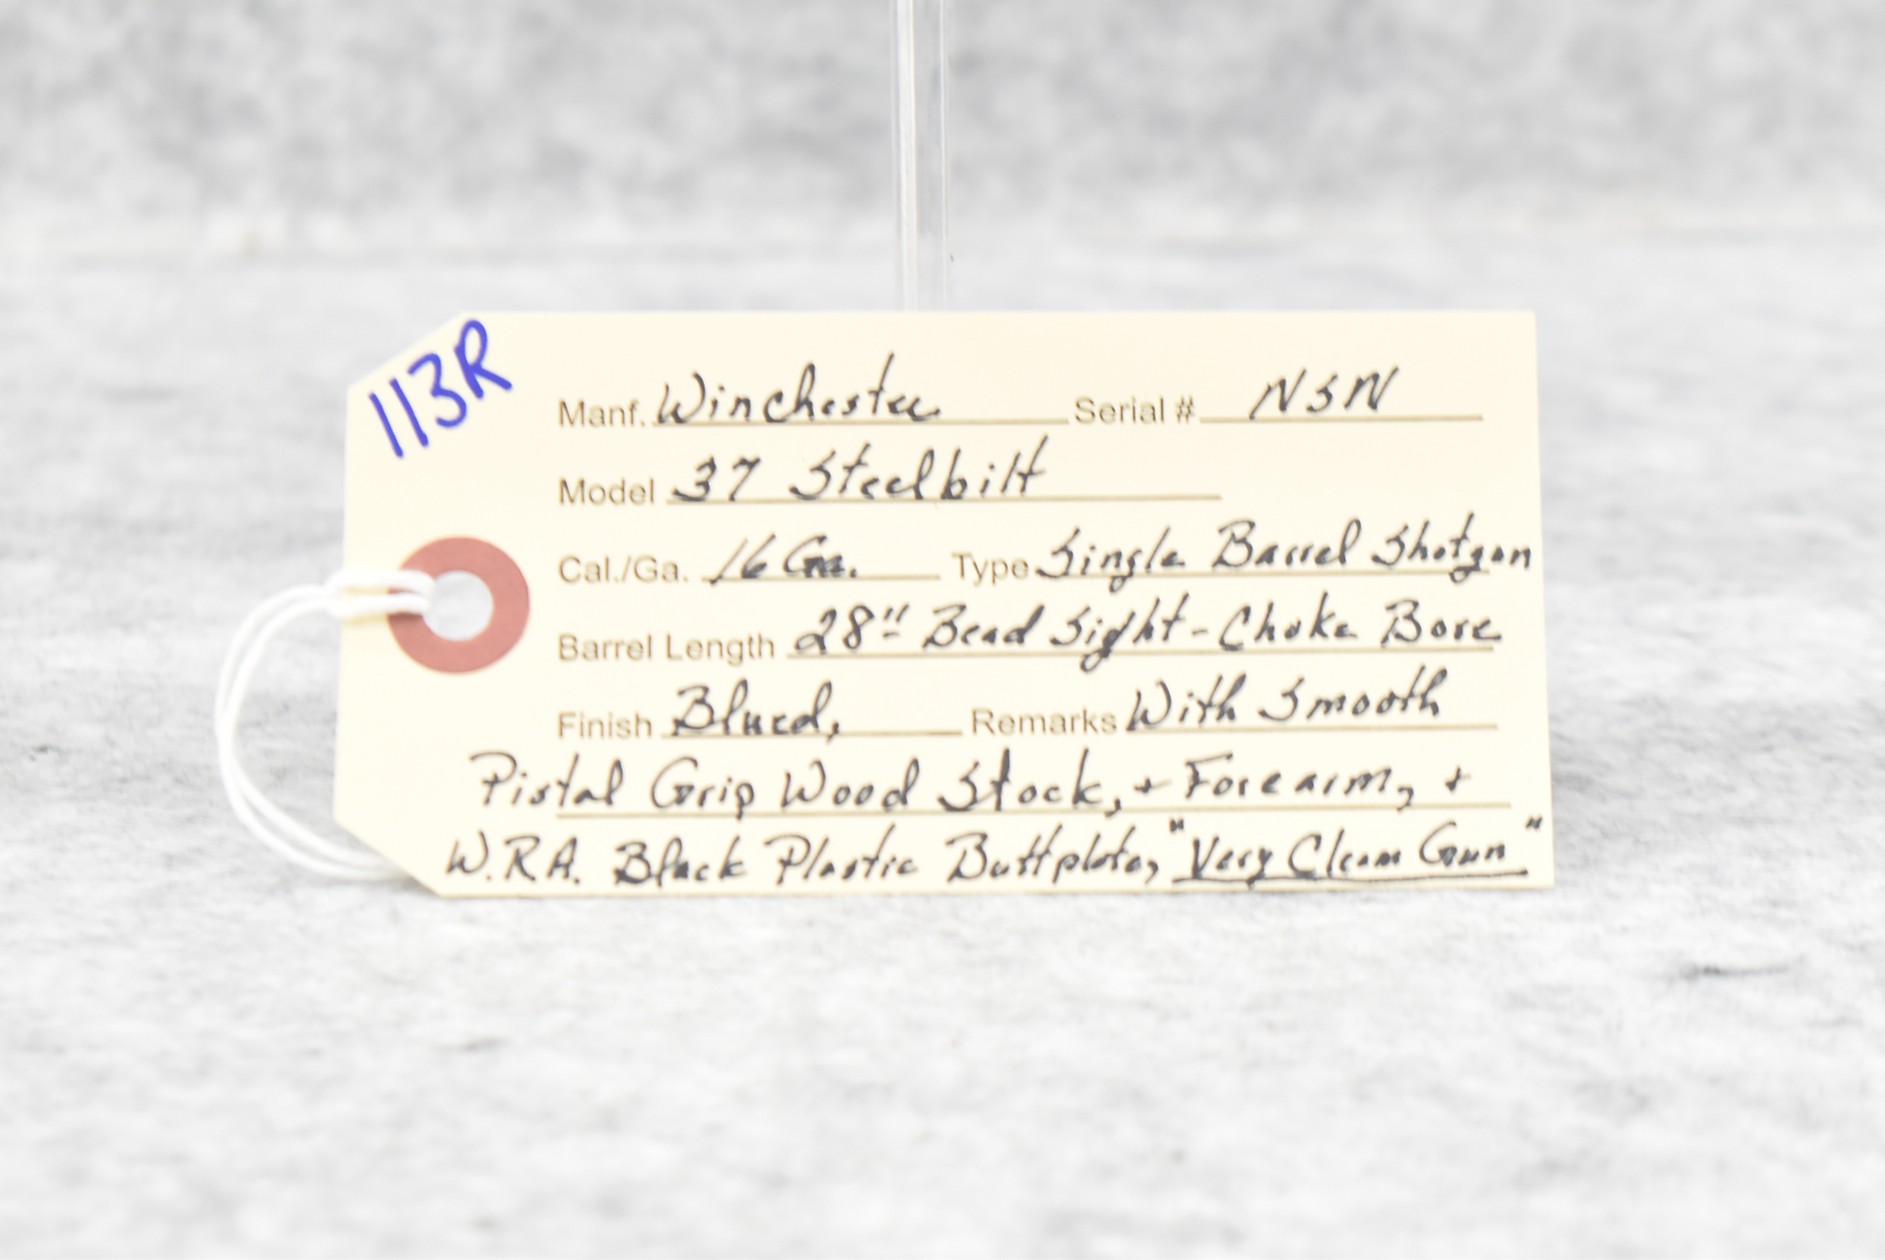 113R
Manf. Winchester Serial # NSN
Model 37 Steelbilt
Cal./Ga. 16 Ga. Type Single Barrel Shotgun
Barrel Length 28" Bead Sight - Choke Bore
Finish Blued, Remarks With Smooth
Pistal Grip Wood Stock, + Forearm, +
W.R.A. Black Plastic Buttplate, "Very Clean Gun"